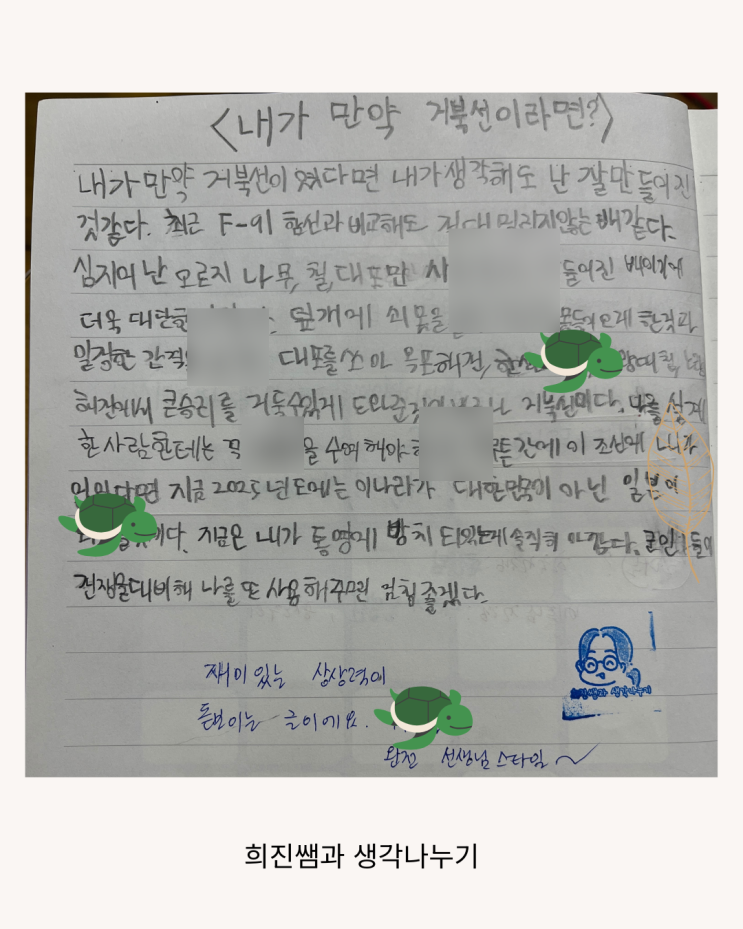 <내가 만약 거북선이라면?>
내가 만약 거북선이 였다면 내가 생각해도 난 잘 만들어진
것같다. 최근 F-91 함선과 비교해도 않는 배같다.
심지어 난 오르지 나무, 철, 대포만 들어진 배이기에
더욱 대단한 덮개에 쇠못을 못들어오게 한것과
대포를 쏘아 옥포해전,
큰승리를 거둘수있게 도와준 거북선이다. 나를 설계
한 사람한테는 꼭 을 수여 해야 간에 이 조선에 내가
없었다면 지금 2025년도에는 이나라가 대한민국이 아닌 일본이
지금은 내가 통영에 방치 되있는게 솔직히 아깝다. 군인들이
전쟁을대비해 나를 또 사용해주면 엄청 좋겠다.
재미있는 상상력이
돋보이는 글이에요.
완전 선생님 스타일~
생각나누기
희진쌤과 생각나누기